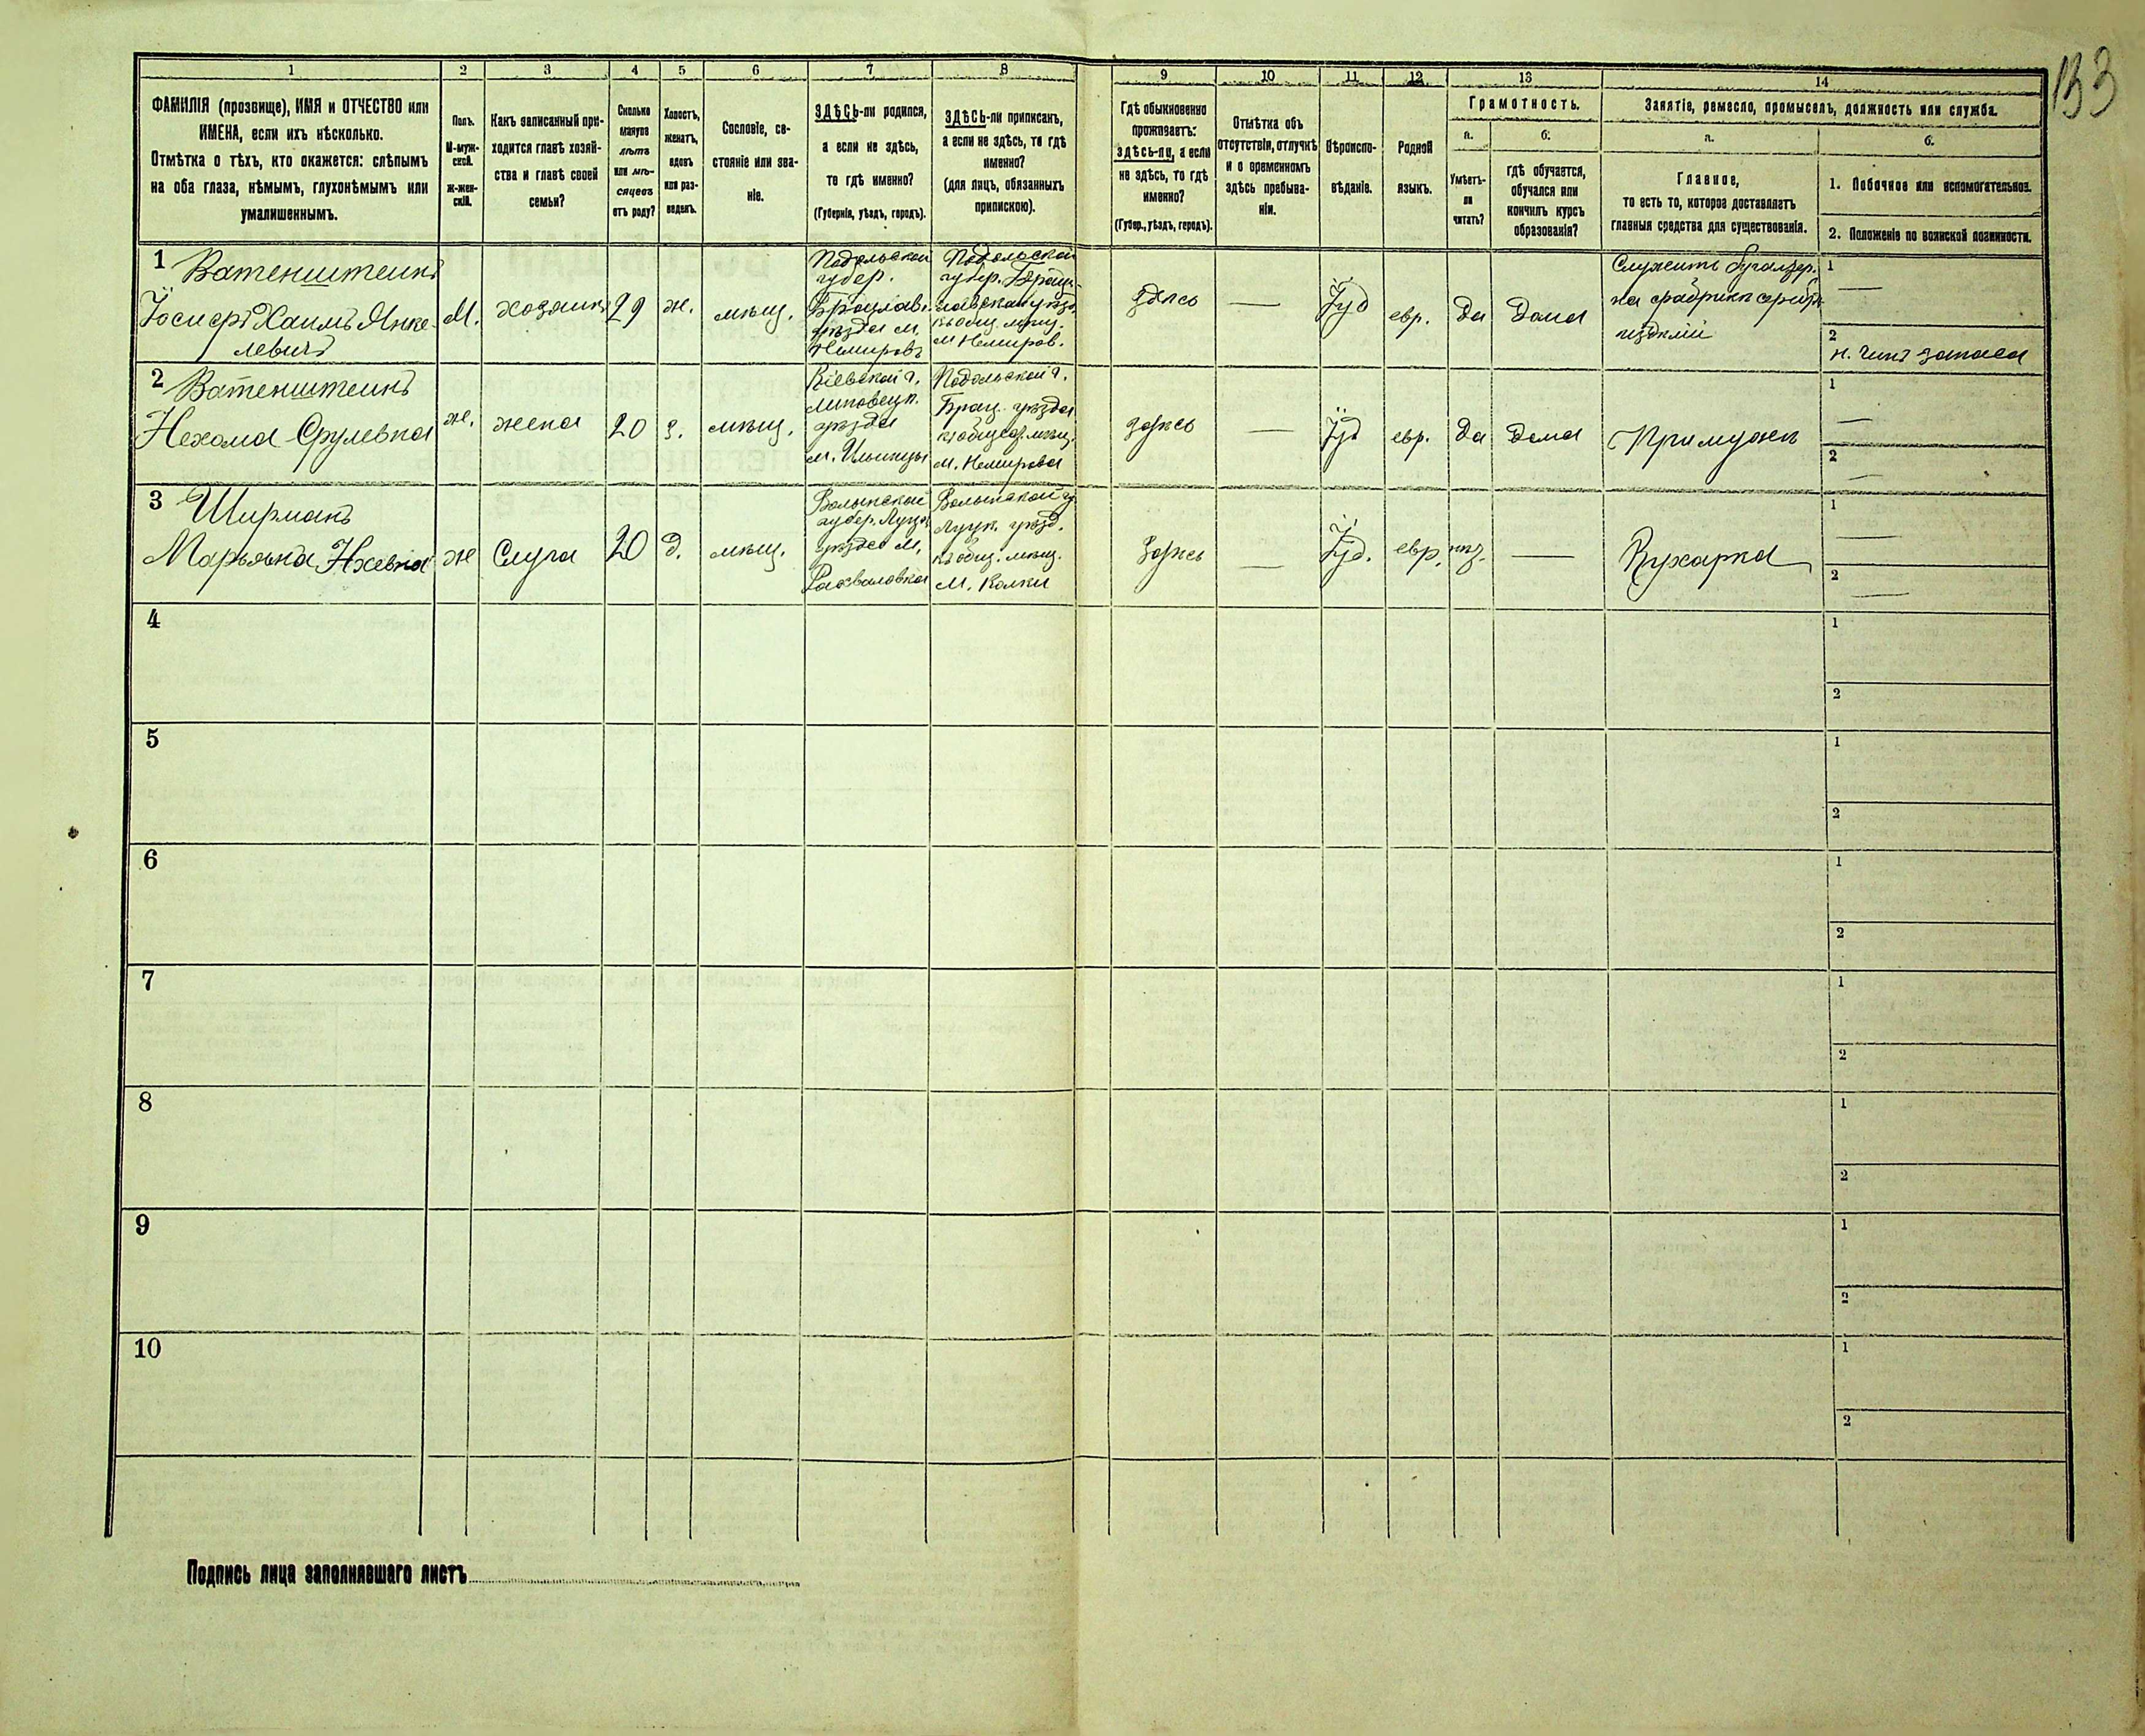 133
1 2 3 4 5 6 7 8 9 10 11 12 13 14
ФАМИЛІЯ (прозвище), ИМЯ и ОТЧЕСТВО или
ИМЕНА, если ихъ нѣсколько.
Отмѣтка о тѣхъ, кто окажется: слѣпымъ
на оба глаза, нѣмымъ, глухонѣмымъ или
умалишеннымъ.
Полъ.
М-муж-
ской.
ж-жен-
скій.
Какъ записанный при-
ходится главѣ хозяй-
ства и главѣ своей
семьи?
Сколько
минуло
лѣтъ
или мѣ-
сяцевъ
отъ роду?
Холостъ,
женатъ,
вдовъ
или раз-
веденъ.
Сословіе, со-
стояніе или зва-
ніе.
ЗДѢСЬ-ли родился,
а если не здѣсь,
то гдѣ именно?
(Губернія, уѣздъ, городъ).
ЗДѢСЬ-ли приписанъ,
а если не здѣсь, то гдѣ
именно?
(для лицъ, обязанныхъ
припискою).
Гдѣ обыкновенно
проживаетъ:
здѣсь-ли, а если
не здѣсь, то гдѣ
именно?
(Губер., уѣздъ, городъ).
Отмѣтка объ
отсутствіи, отлучкѣ
и о временномъ
здѣсь пребыва-
ніи.
Вѣроиспо-
вѣданіе.
Родной
языкъ.
Грамотность.
а.
Умѣетъ-
ли
читать?
б.
гдѣ обучается,
обучался или
кончилъ курсъ
образованія?
Занятіе, ремесло, промыселъ, должность или служба.
а.
Главное,
то есть то, которое доставляетъ
главныя средства для существованія.
б.
1. Побочное или вспомогательное.
2. Положеніе по воинской повинности.
1 Ватенштеинъ
Іосифъ Хаимъ Янке-
левичъ
М.
хозяинъ
29
ж.
мѣщ.
Подольской
губер.
Брацлав.
уѣзда м.
Немировъ
Подольской
губер. Брац-
лавскаго уѣзд.
къ общ. мѣщ.
м Немиров.
здѣсь
—
Іуд
евр.
да
дома
Служитъ бугалтер.
на фабрикѣ
издѣлій
1
—
2
н. чинъ запаса
2 Ватенштеинъ
Нехама Срулевна
ж.
жена
20
з.
мѣщ.
Кіевской г.
Липовецк.
уѣзда
м. Ильинцы
Подольской г.
Брац. уѣзда
къ общес. мѣщ.
м. Немирова
здѣсь
—
Іуд
евр.
да
дома
При мужѣ
1
—
2
—
3 Ширманъ
Марьяна
ж
Слуга
20
д.
мѣщ.
Волынской
губер. Луцк.
уѣзда м.
Рахваловка
Волынской г.
Луцк. уѣзд.
къ общ. мѣщ.
м. Колки
здѣсь
—
Іуд.
евр.
—
Кухарка
1
—
2
—
4
1
2
5
1
2
6
1
2
7
1
2
8
1
2
9
1
2
10
1
2
Подпись лица заполнявшаго листъ